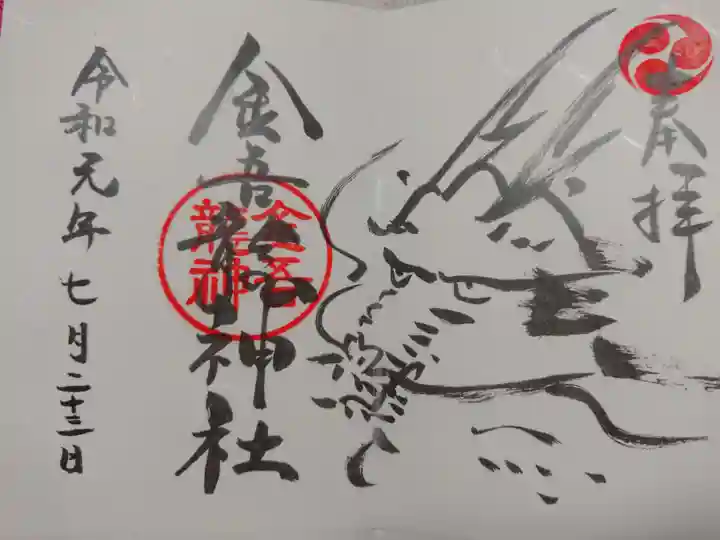 奉拝
金吾龍神社
金吾龍神
令和元年七月二十三日